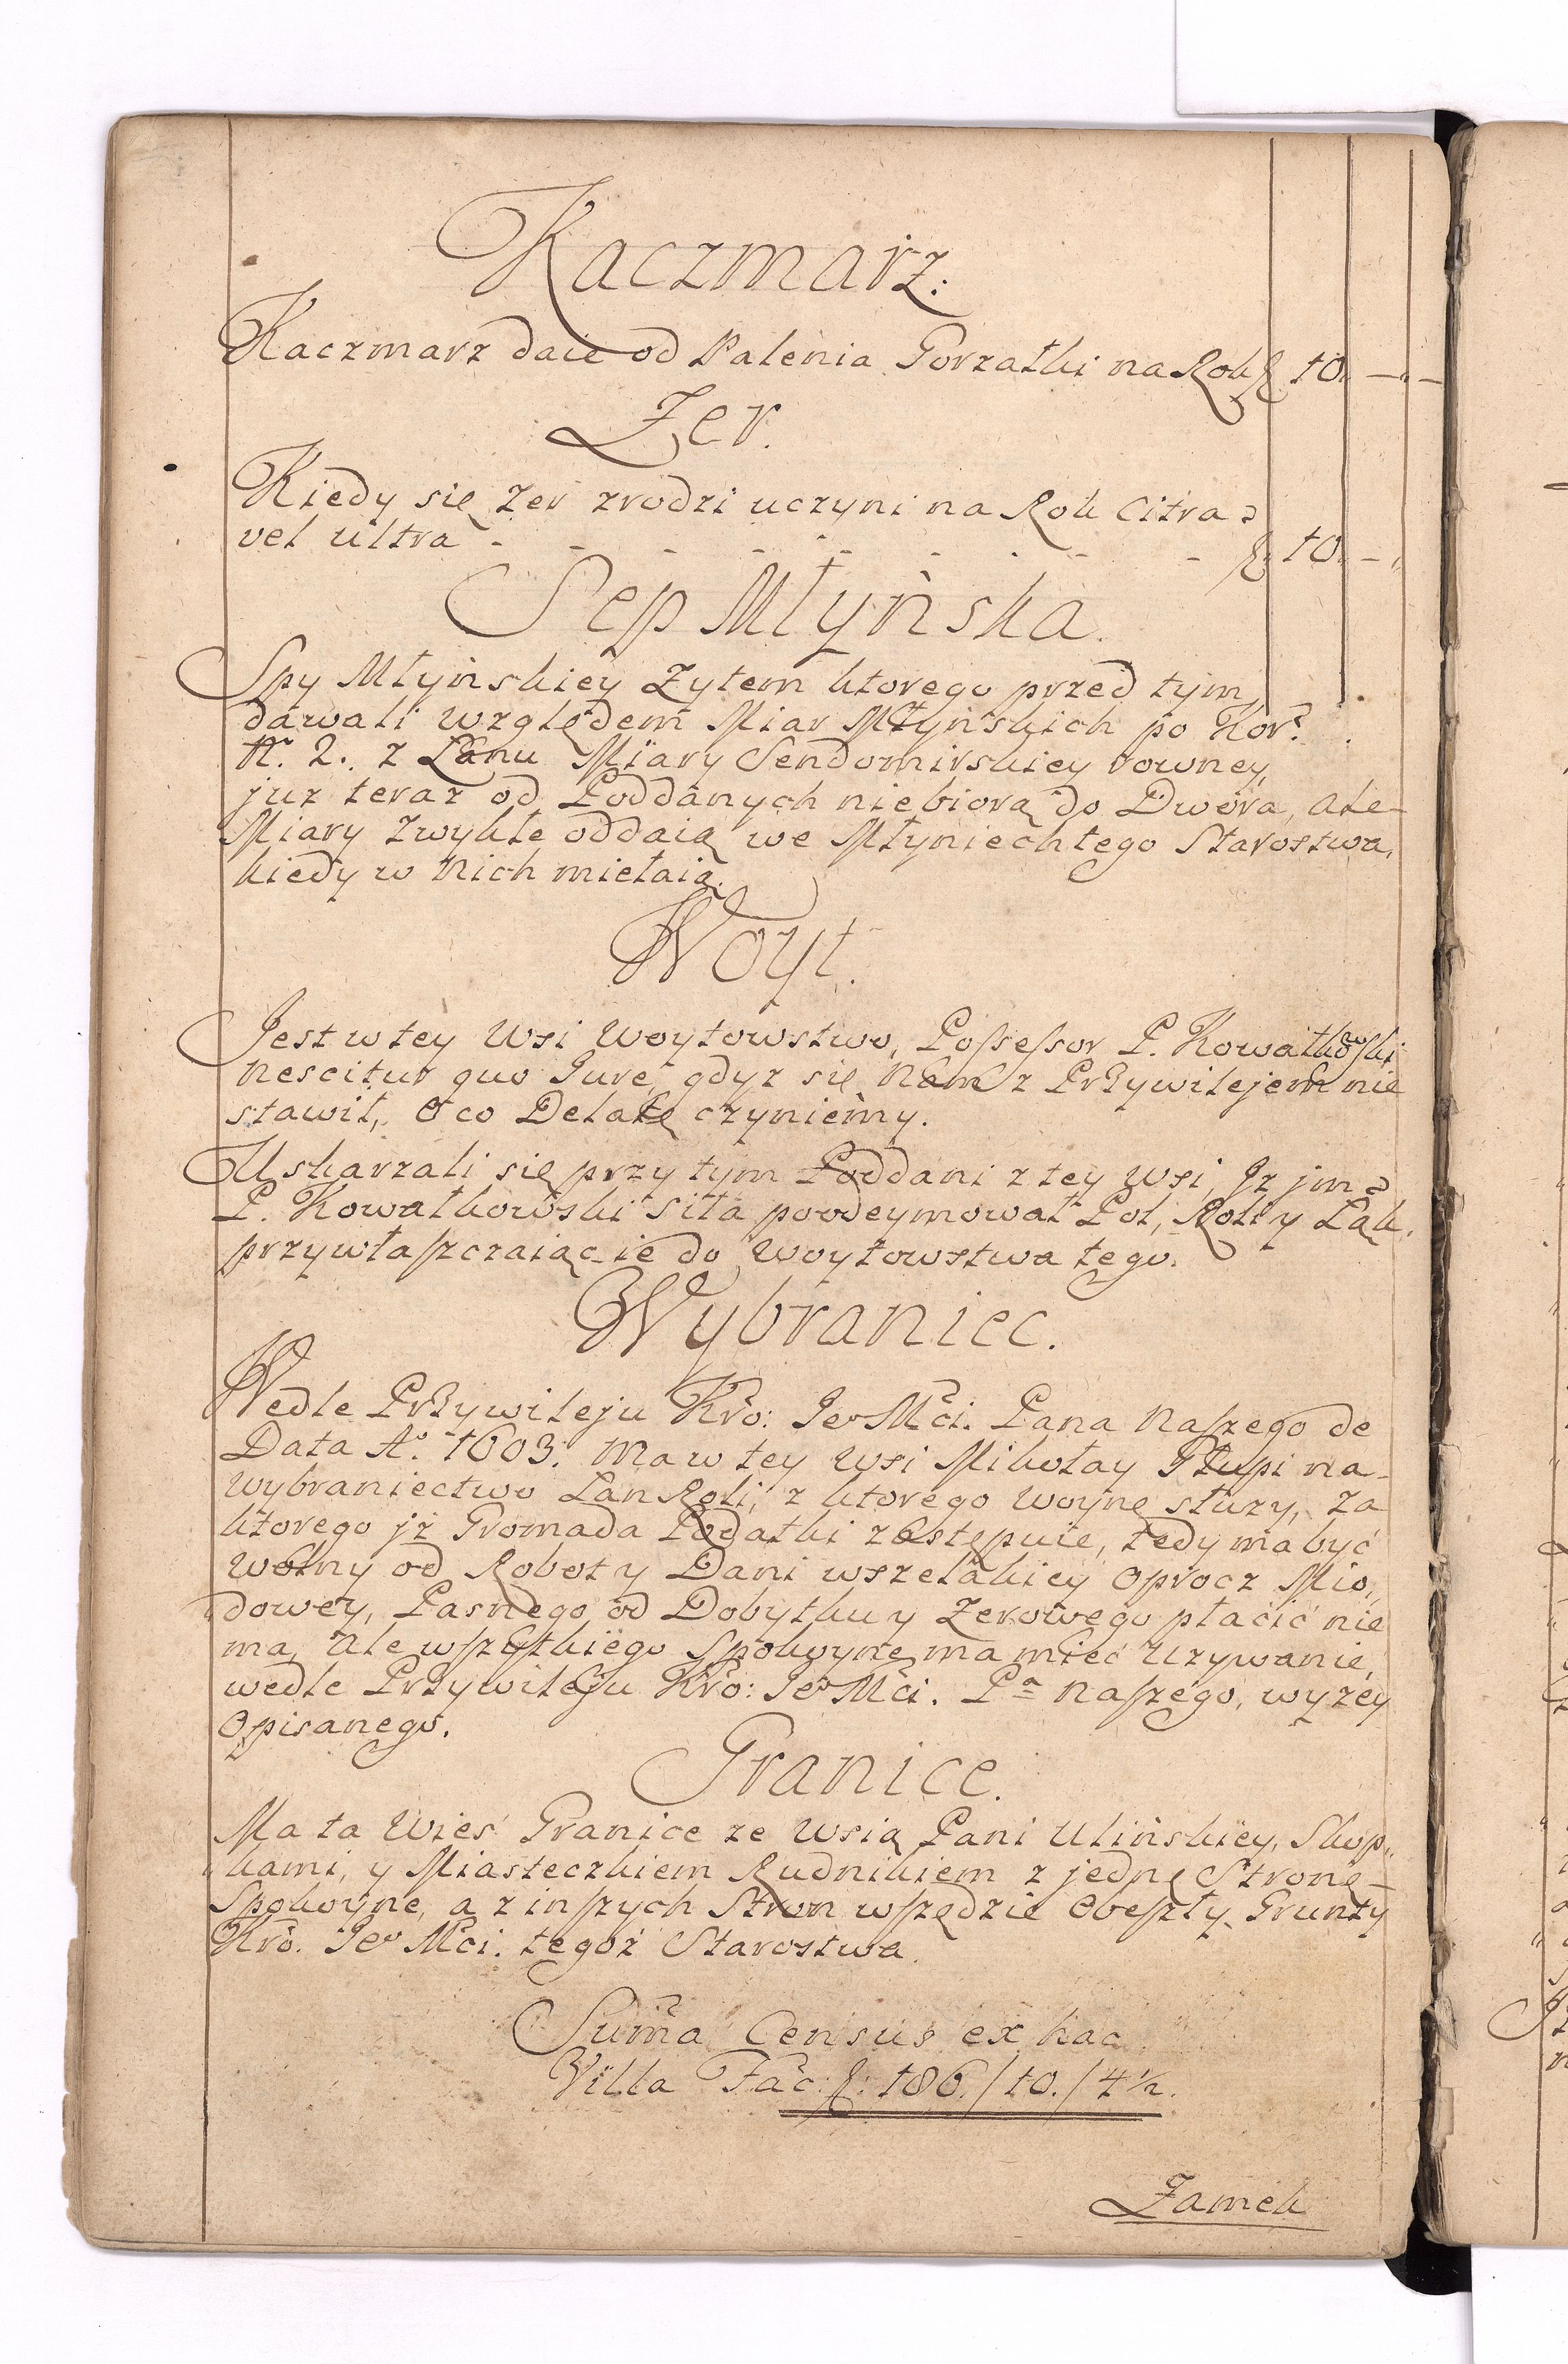 Kaczmarz.
Kaczmarz daie od Palenia Gorzałki na Rok f 10. — " —
Zer.
Kiedy się Zer zrodzi uczyni na Rok Citra
vel ultra - - - - - - - - f. 10. — "
Sep Młyńska.
Spy Młyńskiey Zytem ktorego przed tym
dawali względem Miar Młyńskich po Kor:
Nr. 2. z Łanu Miary Sendomirskiey rowney,
juz teraz od Poddanych niebiorą do Dwora, ale
Miary Zwykłe oddaią we Młyniech tego Starostwa,
kiedy w Nich miełaią.
Woyt.
Jest w tey Wsi Woytowstwo, Poſseſsor P. Kowalkowski
Nescitur quo Jure, gdyz się Nam z Przywilejem nie
stawił, o co Delatę czyniemy.
Uskarzali się przy tym Poddani z tey Wsi, Jz jmć
P. Kowalkowski siła poodeymował Pol, Roli y Łąk,
przywłaſzczaiąc ie do Woytowstwa tego.
Wybraniec.
Wedle Przywileju Kro: Jeo Mći. Pana Naſzego de
Data Ao. 1603. Ma w tey Wsi Mikołay Głupi na
wybraniectwo Łan Roli, z ktorego woynę słuzy, za
ktorego jż Gromada Podatki zastępuie, tedy ma być
Wolny od Robot y Dani wszelakiey oprocz Mio,,
dowey, Pasnego od Dobytku y Zerowego płacić nie
ma, Ale wſzytkiego Spokoyne ma mieć Uzywanie,
wedle Przywileju Kro: Jeo Mći. Pa Naſzego, wyzey
Opisanego.
Granice.
Ma ta Wieś Granice ze Wsią Pani Ulińskiey, Skop,,
kami, y Miasteczkiem Rudnikiem z jednę Stronę
Spokoyne, a z inſzych Stron wſzędzie obeſzły Grunty
Kro. Jeo Mći. tegoż Starostwa.
Suma Census ex hac
Villa Fac: f: 186./10./4½.
Zamek